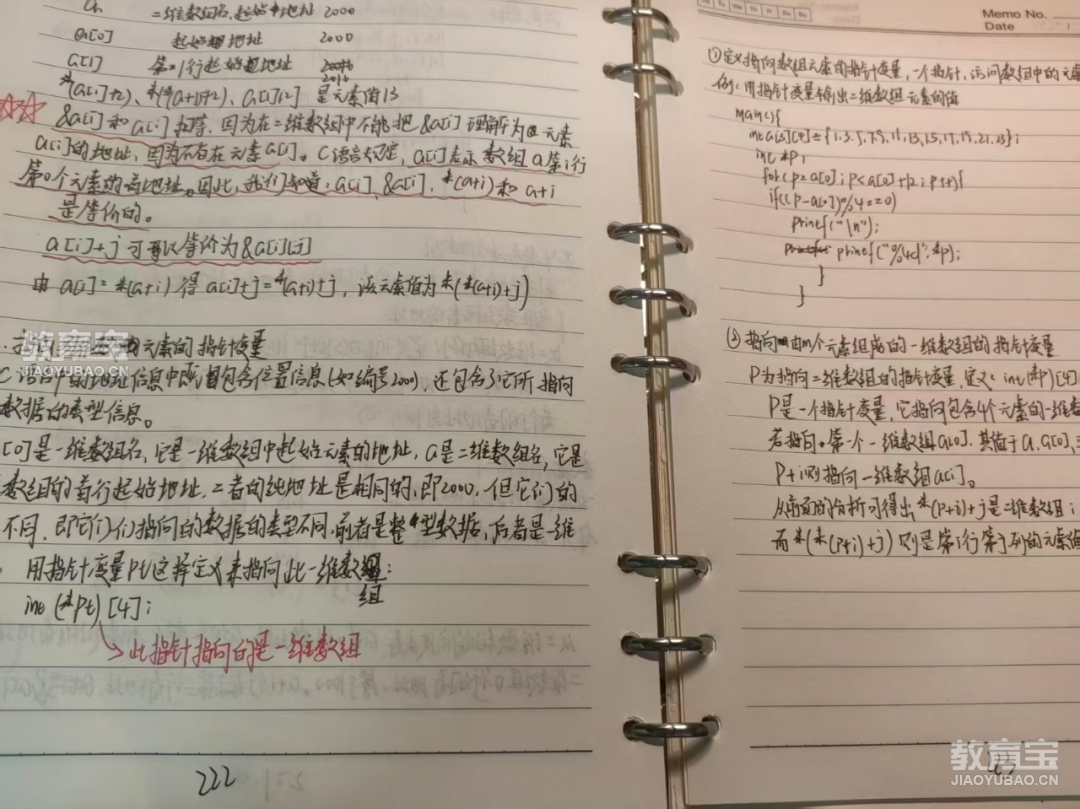 二维数组名,起始地址 2000
a[0] 起始地址 2000
a[1] 第1行起始地址
*(a[1]+2)、*(*(a+1)+2)、a[1][2] 是元素值13
&a[i]和a[i]推荐,因为在二维数组中不能把&a[i]理解为元素
a[i]的地址,因为不存在元素a[i]。C语言规定,a[i]表示数组a第i行
第0个元素的首地址。因此,我们知道:a[i],&a[i],*(a+i)和a+i
是等价的。
a[i]+j可以等价为&a[i][j]
由a[i]=*(a+i)得a[i]+j=*(a+i)+j,该元素值为*(*(a+i)+j)
元素的指针变量
C语言中的地址信息中既包含位置信息(如编号2000),还包含了它所指向
数据的类型信息。
[0]是一维数组名,它是一维数组中起始元素的地址,a是二维数组名,它是
数组的首行起始地址,二者的纯地址是相同的,即2000,但它们的
不同,即它们指向的数据的类型不同,前者是整型数据,后者是一维
用指针变量pt这样定义来指向此一维数组:
int (*pt)[4];
组
此指针指向的是一维数组
222
Memo No.
Date
①定义指向数组元素的指针变量,一个指针,访问数组中的元素
例:用指针变量输出二维数组元素的值
main(){
int a[3][4]={1,3,5,7,9,11,13,15,17,19,21,23};
int *p;
for(p=a[0];p<a[0]+12;p++){
if((p-a[0])%4==0)
printf("\n");
printf("%4d",*p);
}
}
(2)指向由m个元素组成的一维数组的指针变量
P为指向二维数组的指针变量,定义:int(*p)[4]
P是一个指针变量,它指向包含4个元素的一维数
若指向第一个一维数组a[0],其值于a,a[0],
P+i则指向一维数组a[i]。
从前面的分析可得出*(p+i)+j是二维数组i
而*(*(p+i)+j)则是第i行第j列的元素值
教育宝
教育宝
JIAOYUBAO.CN